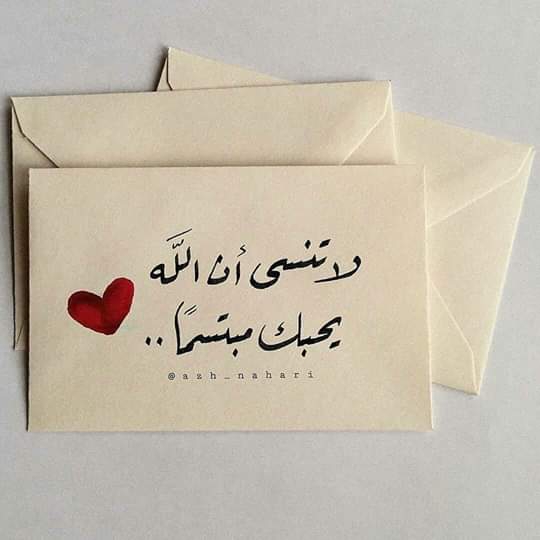 لا تنسى أن اللَّه
يحبك مبتسمًا ..
@azh_nahari